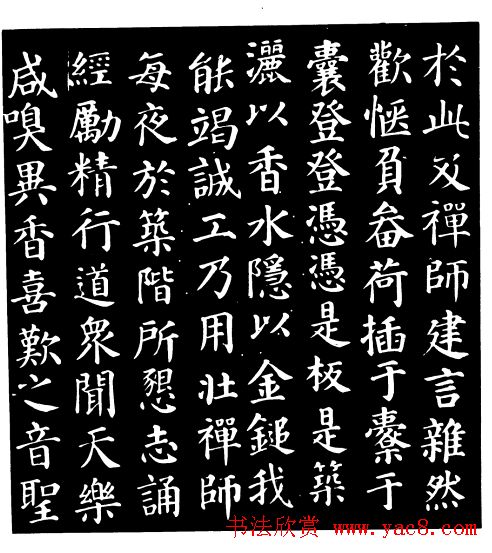 於此爻禪師建言雜然
歡愜負畚荷插于橐于
囊登登憑憑是板是築
灑以香水隱以金鎚我
能竭誠工乃用壯禪師
每夜於築階所懇志誦
經勵精行道眾聞天樂
咸嗅異香喜歎之音聖
书法欣赏 www.yac8.com